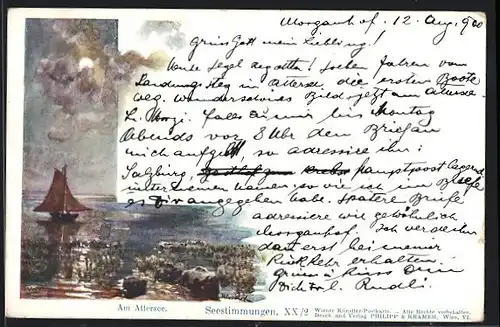 Morganhof, 12. Aug. 900
Grüss Gott mein Liebling!
Heute Segel Regatta! Soeben fahren vom
Landungssteg in Attersee die ersten Boote
weg. Wunderschönes Bild jetzt am Attersee.
L. Falls Du mir bis Montag
Abends vor 8 Uhr den Brief an
mich aufgibst so adressiere ihn:
Salzburg, hauptpost lagernd
unter meinen Namen, so wie ich im Briefe
es Dir angegeben habe. Spätere Briefe
adressiere wie gewöhnlich
Morganhof. Ich werde ihn
dann erst bei meiner
Rückkehr erhalten.
Grüsse u. küsse Dein
Dich Rudli.
Am Attersee.
Seestimmungen. XX/2
Wiener Künstler-Postkarte. — Alle Rechte vorbehalten.
Druck und Verlag PHILIPP & KRAMER, Wien, VI.